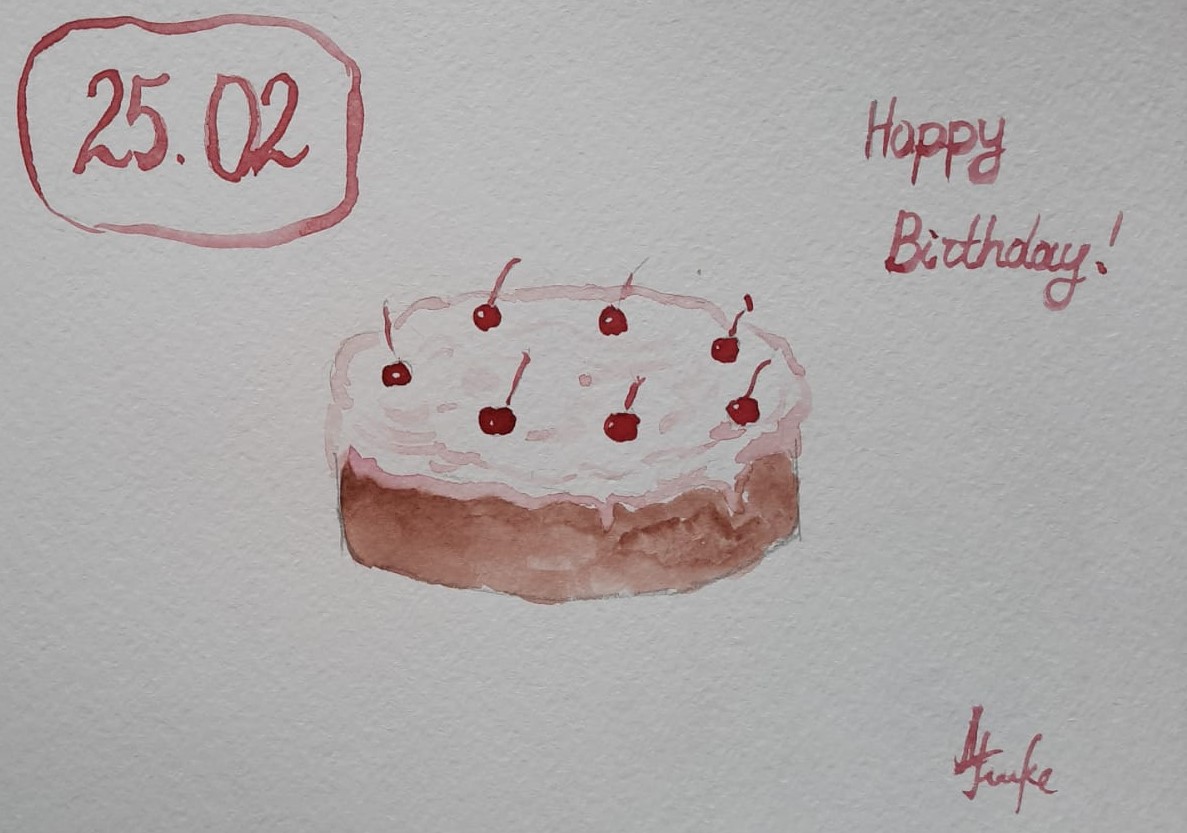 25.02
Happy
Birthday!